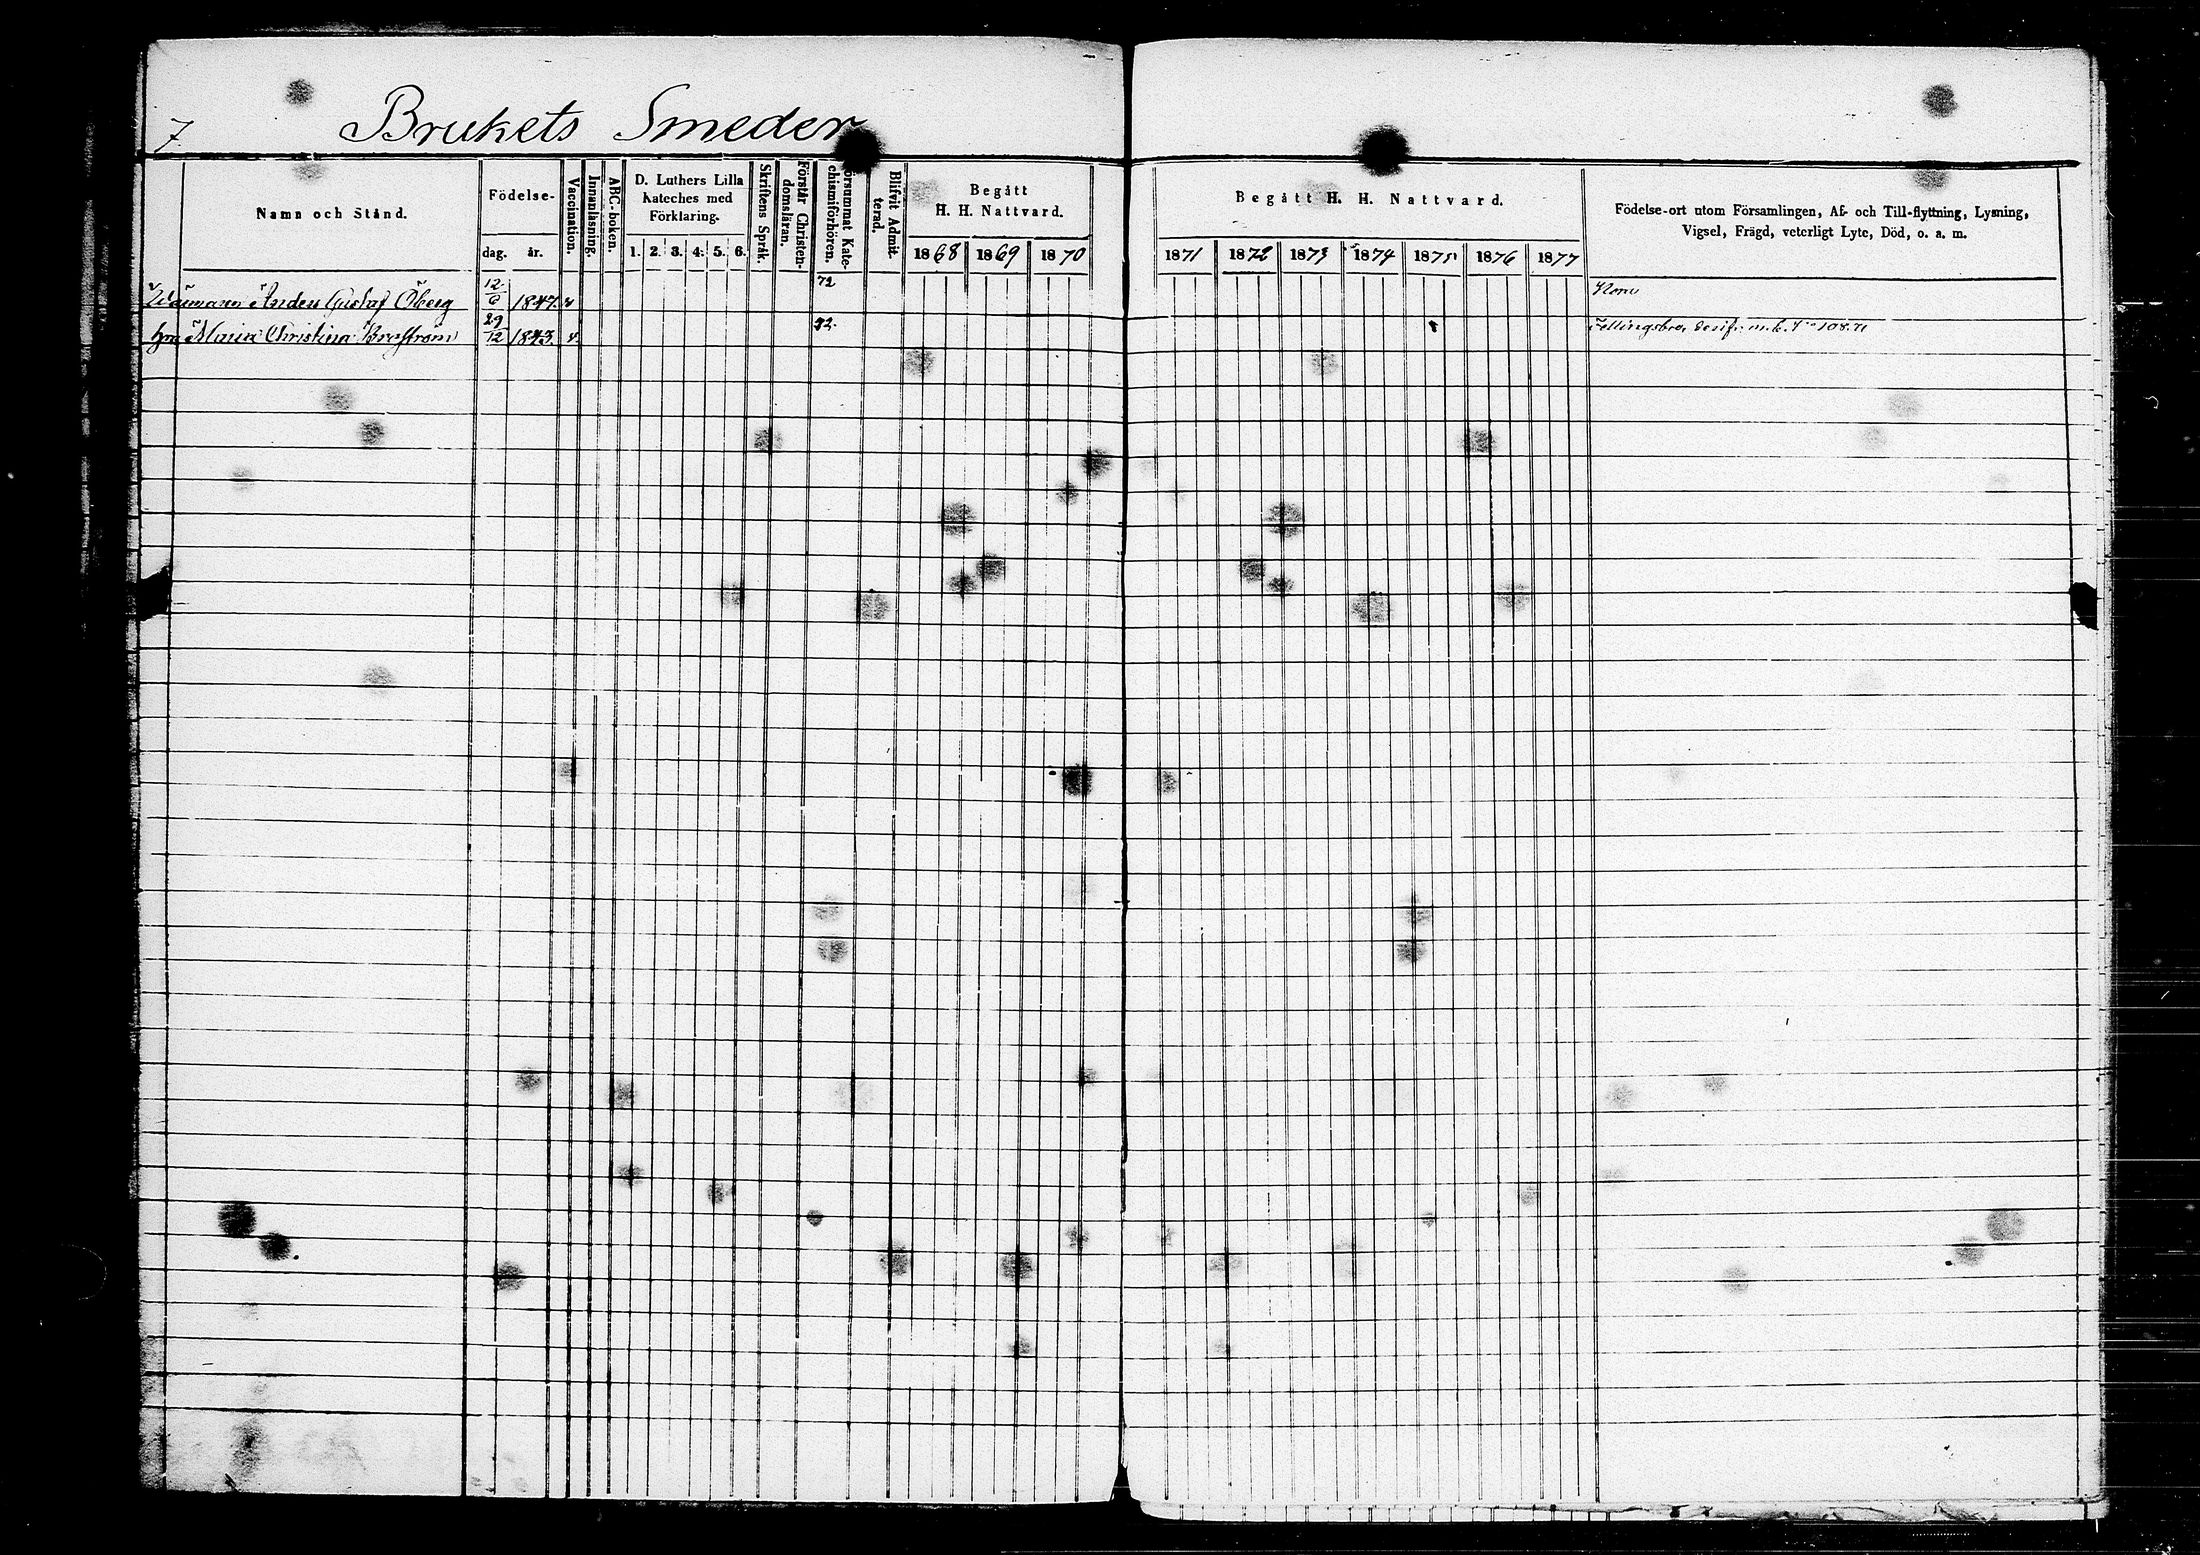 7 Brukets Smeder
Namn och Stånd.
Födelse-
dag. år.
Vaccination.
Innanläsning.
ABC-boken.
D. Luthers Lilla
Kateches med
Förklaring.
1. 2. 3. 4. 5. 6.
Skriftens Språk.
Förstår Christen-
domsläran.
Försummat Kate-
chismiförhören.
Blifvit Admit-
terad.
Begått
H. H. Nattvard.
1868 1869 1870
Begått H. H. Nattvard.
1871 1872 1873 1874 1875 1876 1877
Födelse-ort utom Församlingen, Af- och Till-flyttning, Lysning,
Vigsel, Frägd, veterligt Lyte, Död, o. a. m.
Anders Gustaf Öberg 12/6 1847. v 72
Maria Christina 29/12 1843. v 72. Fellingsbro, 108. 71